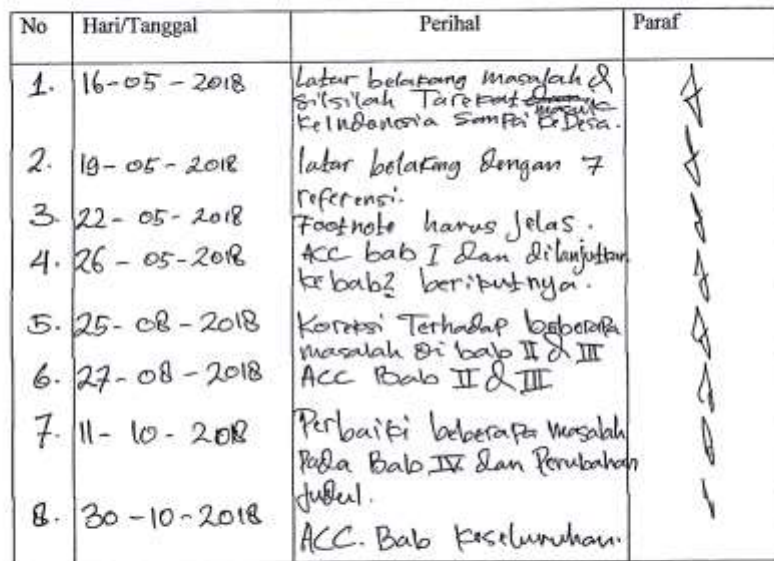 No Hari/Tanggal Perihal Paraf
1. 16-05-2018 Latar belakang masalah &
silsilah Tarekat masuk
ke Indonesia sampai ke Desa.
2. 19-05-2018 latar belakang dengan 7
referensi.
3. 22-05-2018 Footnote harus jelas.
4. 26-05-2018 ACC bab I dan dilanjutkan
ke bab2 berikutnya.
5. 25-08-2018 Koreksi Terhadap beberapa
masalah di bab II & III
6. 27-08-2018 ACC Bab II & III
7. 11-10-2018 Perbaiki beberapa masalah
Pada Bab IV dan Perubahan
judul.
8. 30-10-2018
ACC. Bab keseluruhan.